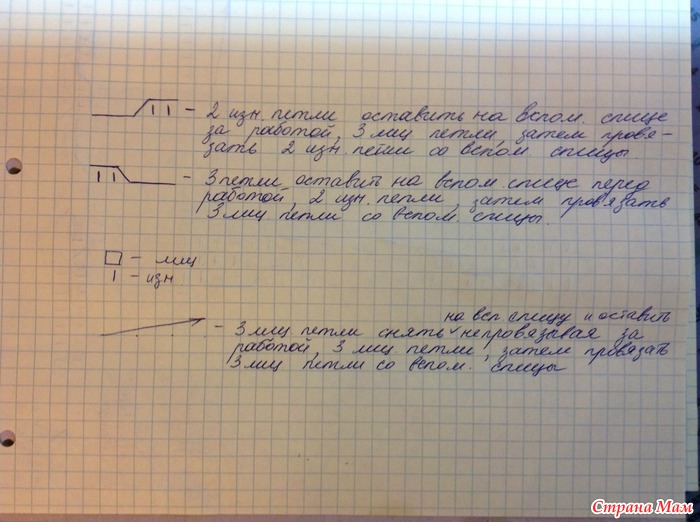 – 2 изн. петли оставить на вспом. спице
за работой, 3 лиц петли, затем провя-
зать 2 изн. петли со вспом спицы.
– 3 петли оставит на вспом. спице перед
работой, 2 изн. петли, затем провязать
3 лиц петли со вспом. спицы.
□ – лиц
I – изн
на всп спицу и оставить
– 3 лиц петли снять непровязывая за
работой, 3 лиц петли, затем провязать
3 лиц петли со вспом. спицы
Страна Мам